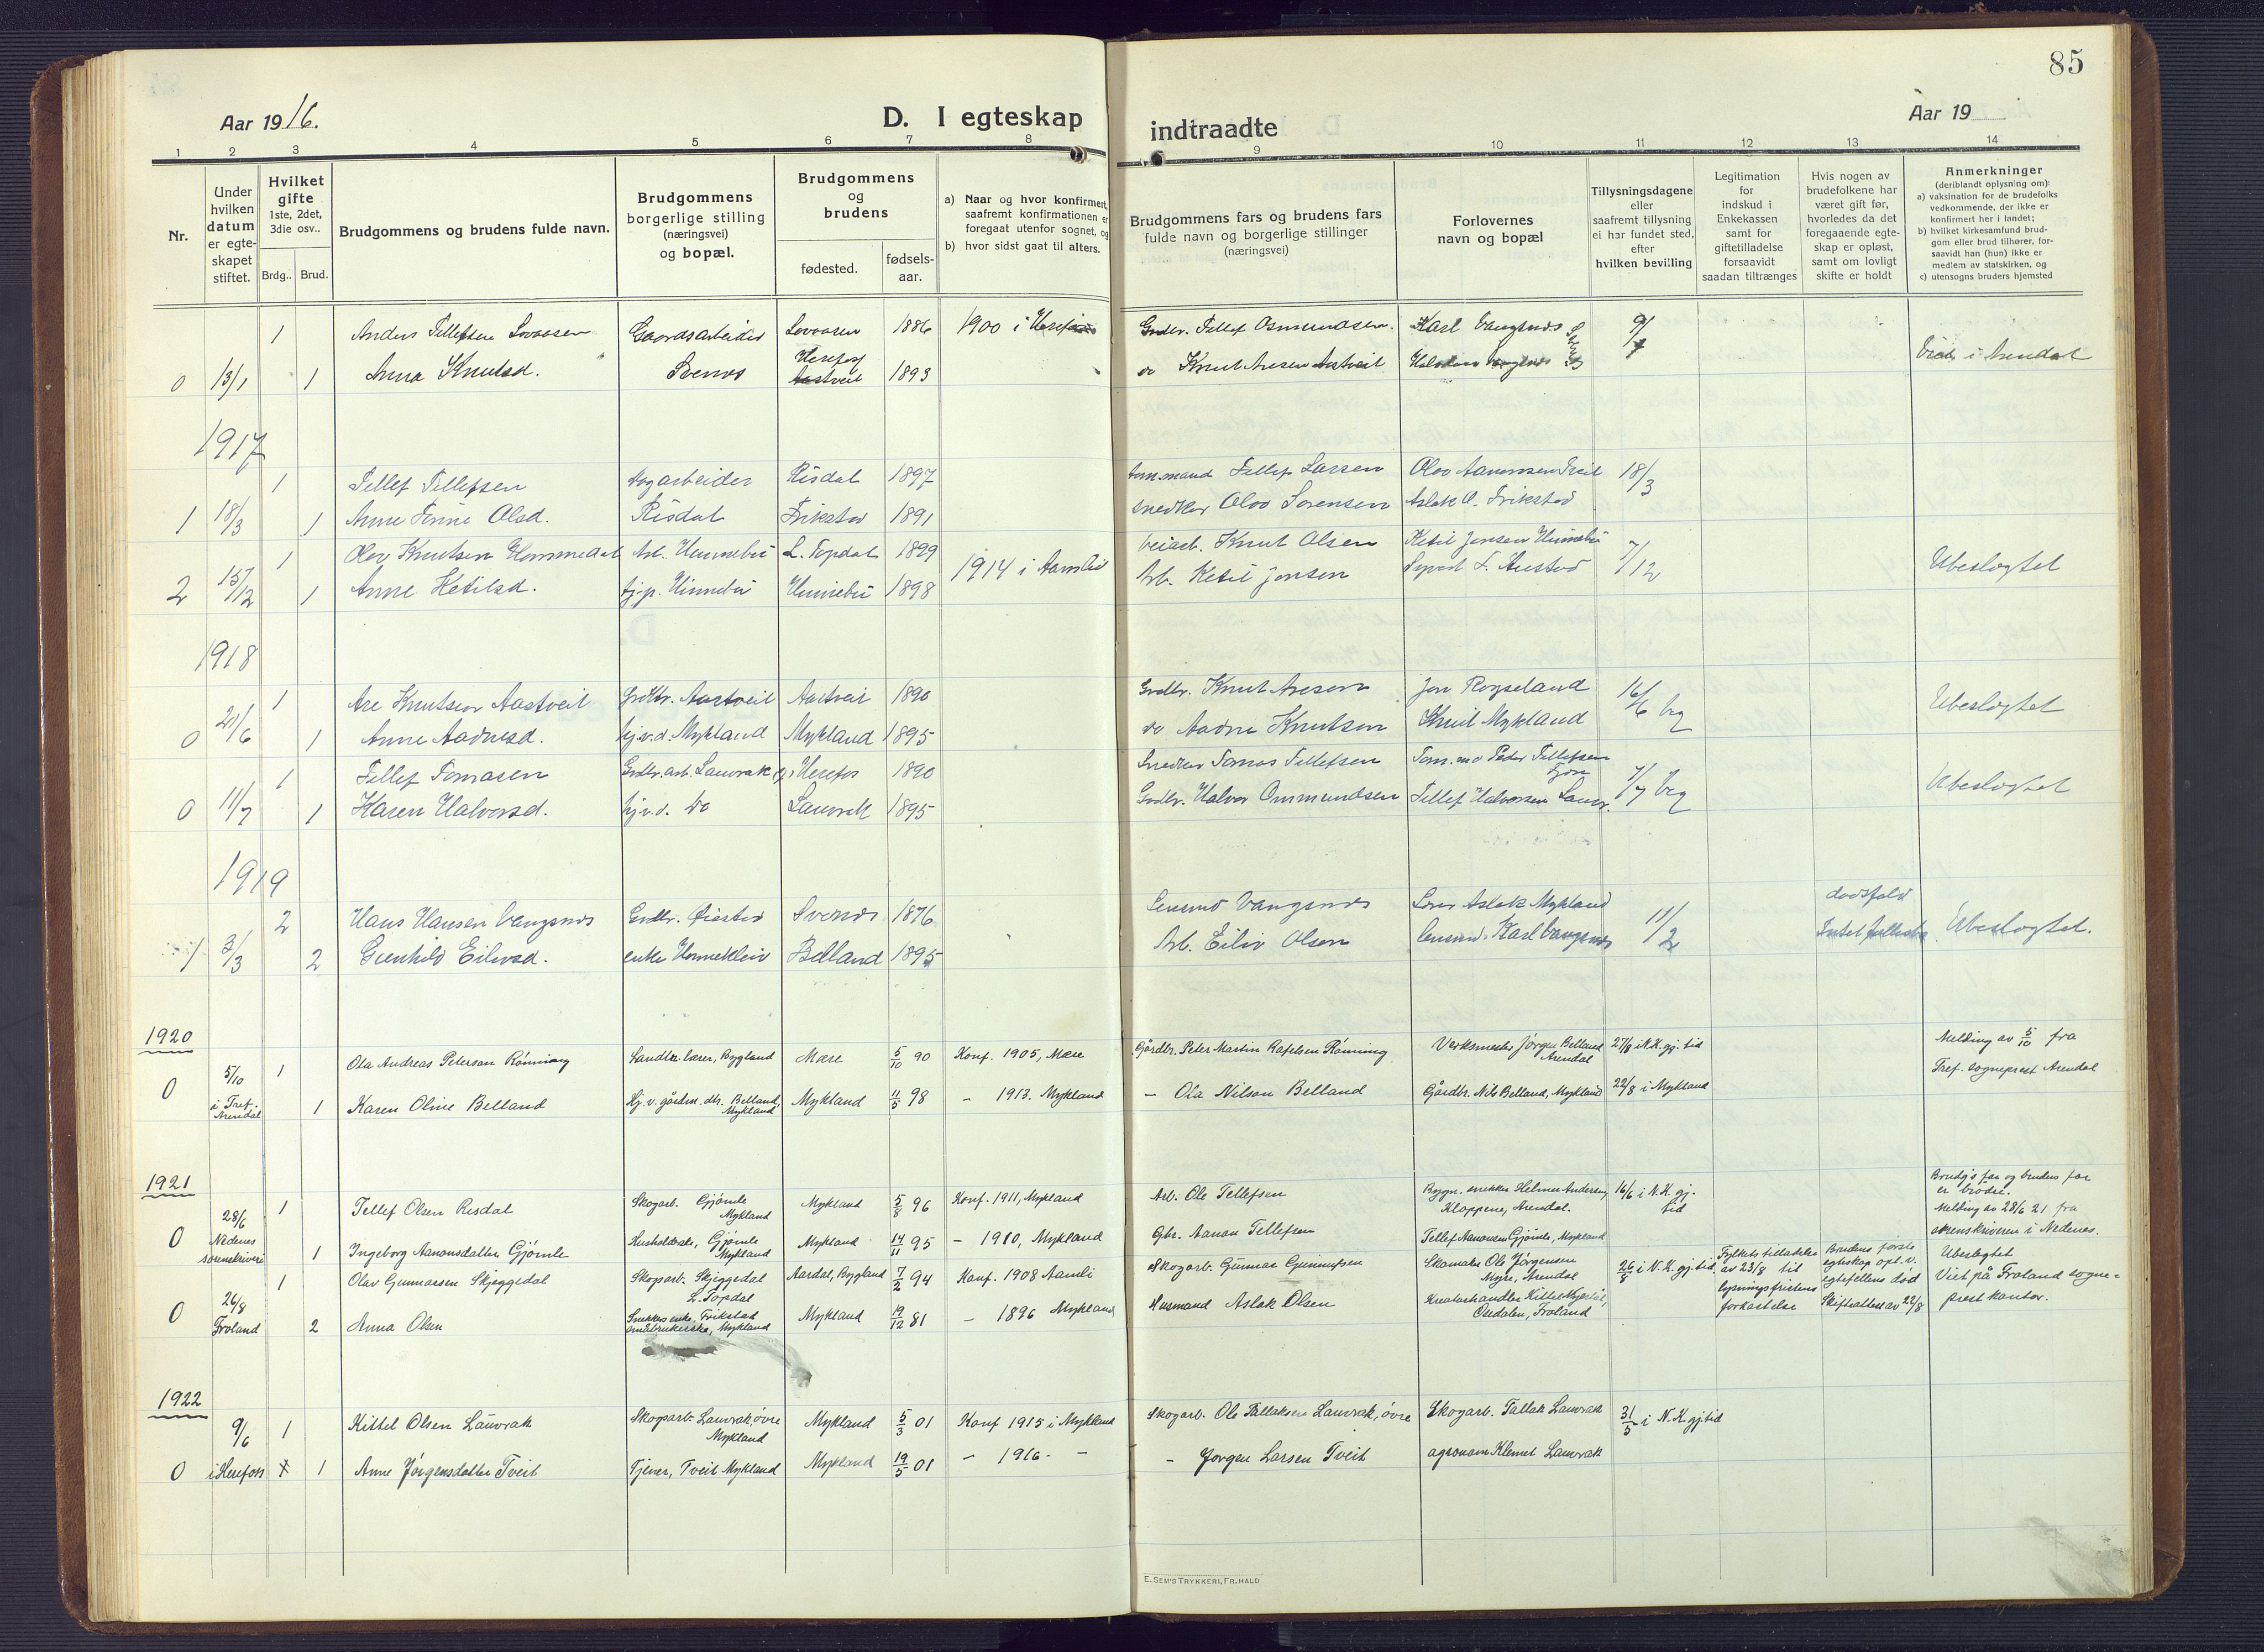 85
Aar 1916.
D. I egteskap
indtraadte
Aar 19
1 2 3 4 5 6 7 8 9 10 11 12 13 14
Nr.
Under hvilken datum er egteskapet stiftet.
Hvilket gifte 1ste, 2det, 3die osv..
Brdg.. Brud.
Brudgommens og brudens fulde navn.
Brudgommens borgerlige stilling (næringsvei) og bopæl.
Brudgommens og brudens
fødested.
fødselsaar.
a) Naar og hvor konfirmert, saafremt konfirmationen er foregaat utenfor sognet, og
b) hvor sidst gaat til alters.
Brudgommens fars og brudens fars fulde navn og borgerlige stillinger (næringsvei)
Forlovernes navn og bopæl
Tillysningsdagene eller saafremt tillysning ei har fundet sted, efter hvilken bevilling
Legitimation for indskud i Enkekassen samt for giftetilladelse forsaavidt saadan tiltrænges
Hvis nogen av brudefolkene har været gift før, hvorledes da det foregaaende egteskap er opløst, samt om lovligt skifte er holdt
Anmerkninger (deriblandt oplysning om):
a) vaksination for de brudefolks vedkommende, der ikke er konfirmert her i landet;
b) hvilket kirkesamfund brudgom eller brud tilhører, forsaavidt han (hun) ikke er medlem av statskirken, og
c) utensogns bruders hjemsted
1 Anders Tellefsen Lovaasen Gaardsarbeider Lovaasen 1886 1900 i Herefos Grdbr. Tellef Osmundsen. Karl Vangsnes 9/
0 13/1 1 Anna Knutsd. Svenes Herefos 1893 do Knut Aresen Aastveit Viet i Arendal
1917
1 Tellef Tellefsen Risdal 1897 Tellef Larsen 18/3
1 18/3 1 Anne Tinne Olsd. Risdal Frikstad 1891 Snedker Olav Sorensen Aslak O. Frikstad
1 Olav Knutsen Hommedal Arb. Hinnebu L. Topdal 1899 1914 i Aamlid Veiarb. Knut Olsen Ketil Jensen Hinnebu 7/12 Ubeslogtet
2 15/12 1 Anne Ketilsd. tj.p. Hinnebu Hinnebu 1898 Arb. Ketil Jensen
1918
1 Are Knutsen Aastveit Grdbr. Aastveit Aastveit 1890 Grdbr. Knut Aresen Jon Rogseland 16/6 Ubeslogtet
0 21/6 1 Anne Aadnesd. hj.v.d. Mykland Mykland 1895 do Aadne Knutsen Mykland
1 Tellef Tomasen Grdbr.arb. Lauvrak Herefos 1890 Snedker Tomas Tellefsen Peder Tellefsen 7/7 Ubeslogtet
0 11/7 1 Karen Halvorsd. hj.v.d. Do Lauvrak 1895 Grdbr. Halvor Ommundsen Tellef Halvorsen Lauvr.
1919
2 Hans Hansen Vangsnes Grdbr. Øiestad Svenes 1876 Lensmd Vangsnes Aslak Mykland 11/2 dødsfald
1 3/3 2 Gunhild Eilevsd. enke Hommekleiv Belland 1895 Arb. Eiliv Olsen Lensmd. Karl Vangsnes Ubeslogtet.
1920
5/10 1 Ola Andreas Peterson Rönning Landbr. lærer, Bygland Mære 5/10 90 Konf. 1905, Mære Gårdbr. Peter Martin Rafelsen Rönning Verksmester Jørgen Belland Arendal 27/8 i N.K. gj. tid Melding av 5/10 fra Tref. sogneprest Arendal
0 i Tref.-Arendal 1 Karen Oline Belland Hj. v. gårdm. dtr. Belland, Mykland Mykland 11/5 98 – 1913. Mykland – Ola Nilson Belland Gårdbr. Nils Belland, Mykland 22/8 i Mykland
1921
28/6 1 Tellef Olsen Risdal Skogarb. Gjömle Mykland Mykland 5/8 96 Konf. 1911, Mykland Arb. Ole Tellefsen Bygn. snekker Helmer Andersen, Kloppene, Arendal. 16/6 i N.K. gj. tid Brudg's far og brudens far er brødre. Melding av 28/6 21 fra sorenskriveren i Nedenes.
0 Nedenes sorenskriveri 1 Ingeborg Aanonsdatter Gjömle Gjömle Mykland Mykland 14/11 95 – 1910, Mykland Gbr. Aanon Tellefsen Tellef Aanonsen Gjömle, Mykland
26/8 1 Olav Gunnarsen Skjeggedal Skogsarb. Skjeggedal L. Topdal Aardal, Bygland 7/2 94 Konf. 1908 Aamli Skogarb. Gunnar Gunnufsen Skomaker Ole Jörgensen Myre, Arendal 26/8 i N.K. gj. tid Fylkets tilladelse av 23/8 til lysningsfristens forkastelse Brudens første egteskap opl. v. egtefellens død Skifteattest av 22/8 Ubeslegtet Viet på Froland sogneprestkontor.
0 Froland 2 Anna Olsen Snekkers enke, Frikstad småbrukerske, Mykland Mykland 19/12 81 – 1896 Mykland Husmand Aslak Olsen Osedalen, Froland
1922
9/6 1 Kittel Olsen Lauvrak Skogsarb. Lauvrak, övre Mykland Mykland 5/3 01 Konf 1915 i Mykland Skogarb. Ole Tallaksen Lauvrak, övre Skogarb. Tallak Lauvrak 31/5 i N.K. gj. tid
0 i Herefoss 1 Anne Jörgensdatter Tveit Tjener, Tveit Mykland Mykland 19/5 01 – 1916 – – – Jörgen Larsen Tveit agronom Klemet Lauvrak
E. SEM'S TRYKKERI, FR. HALD